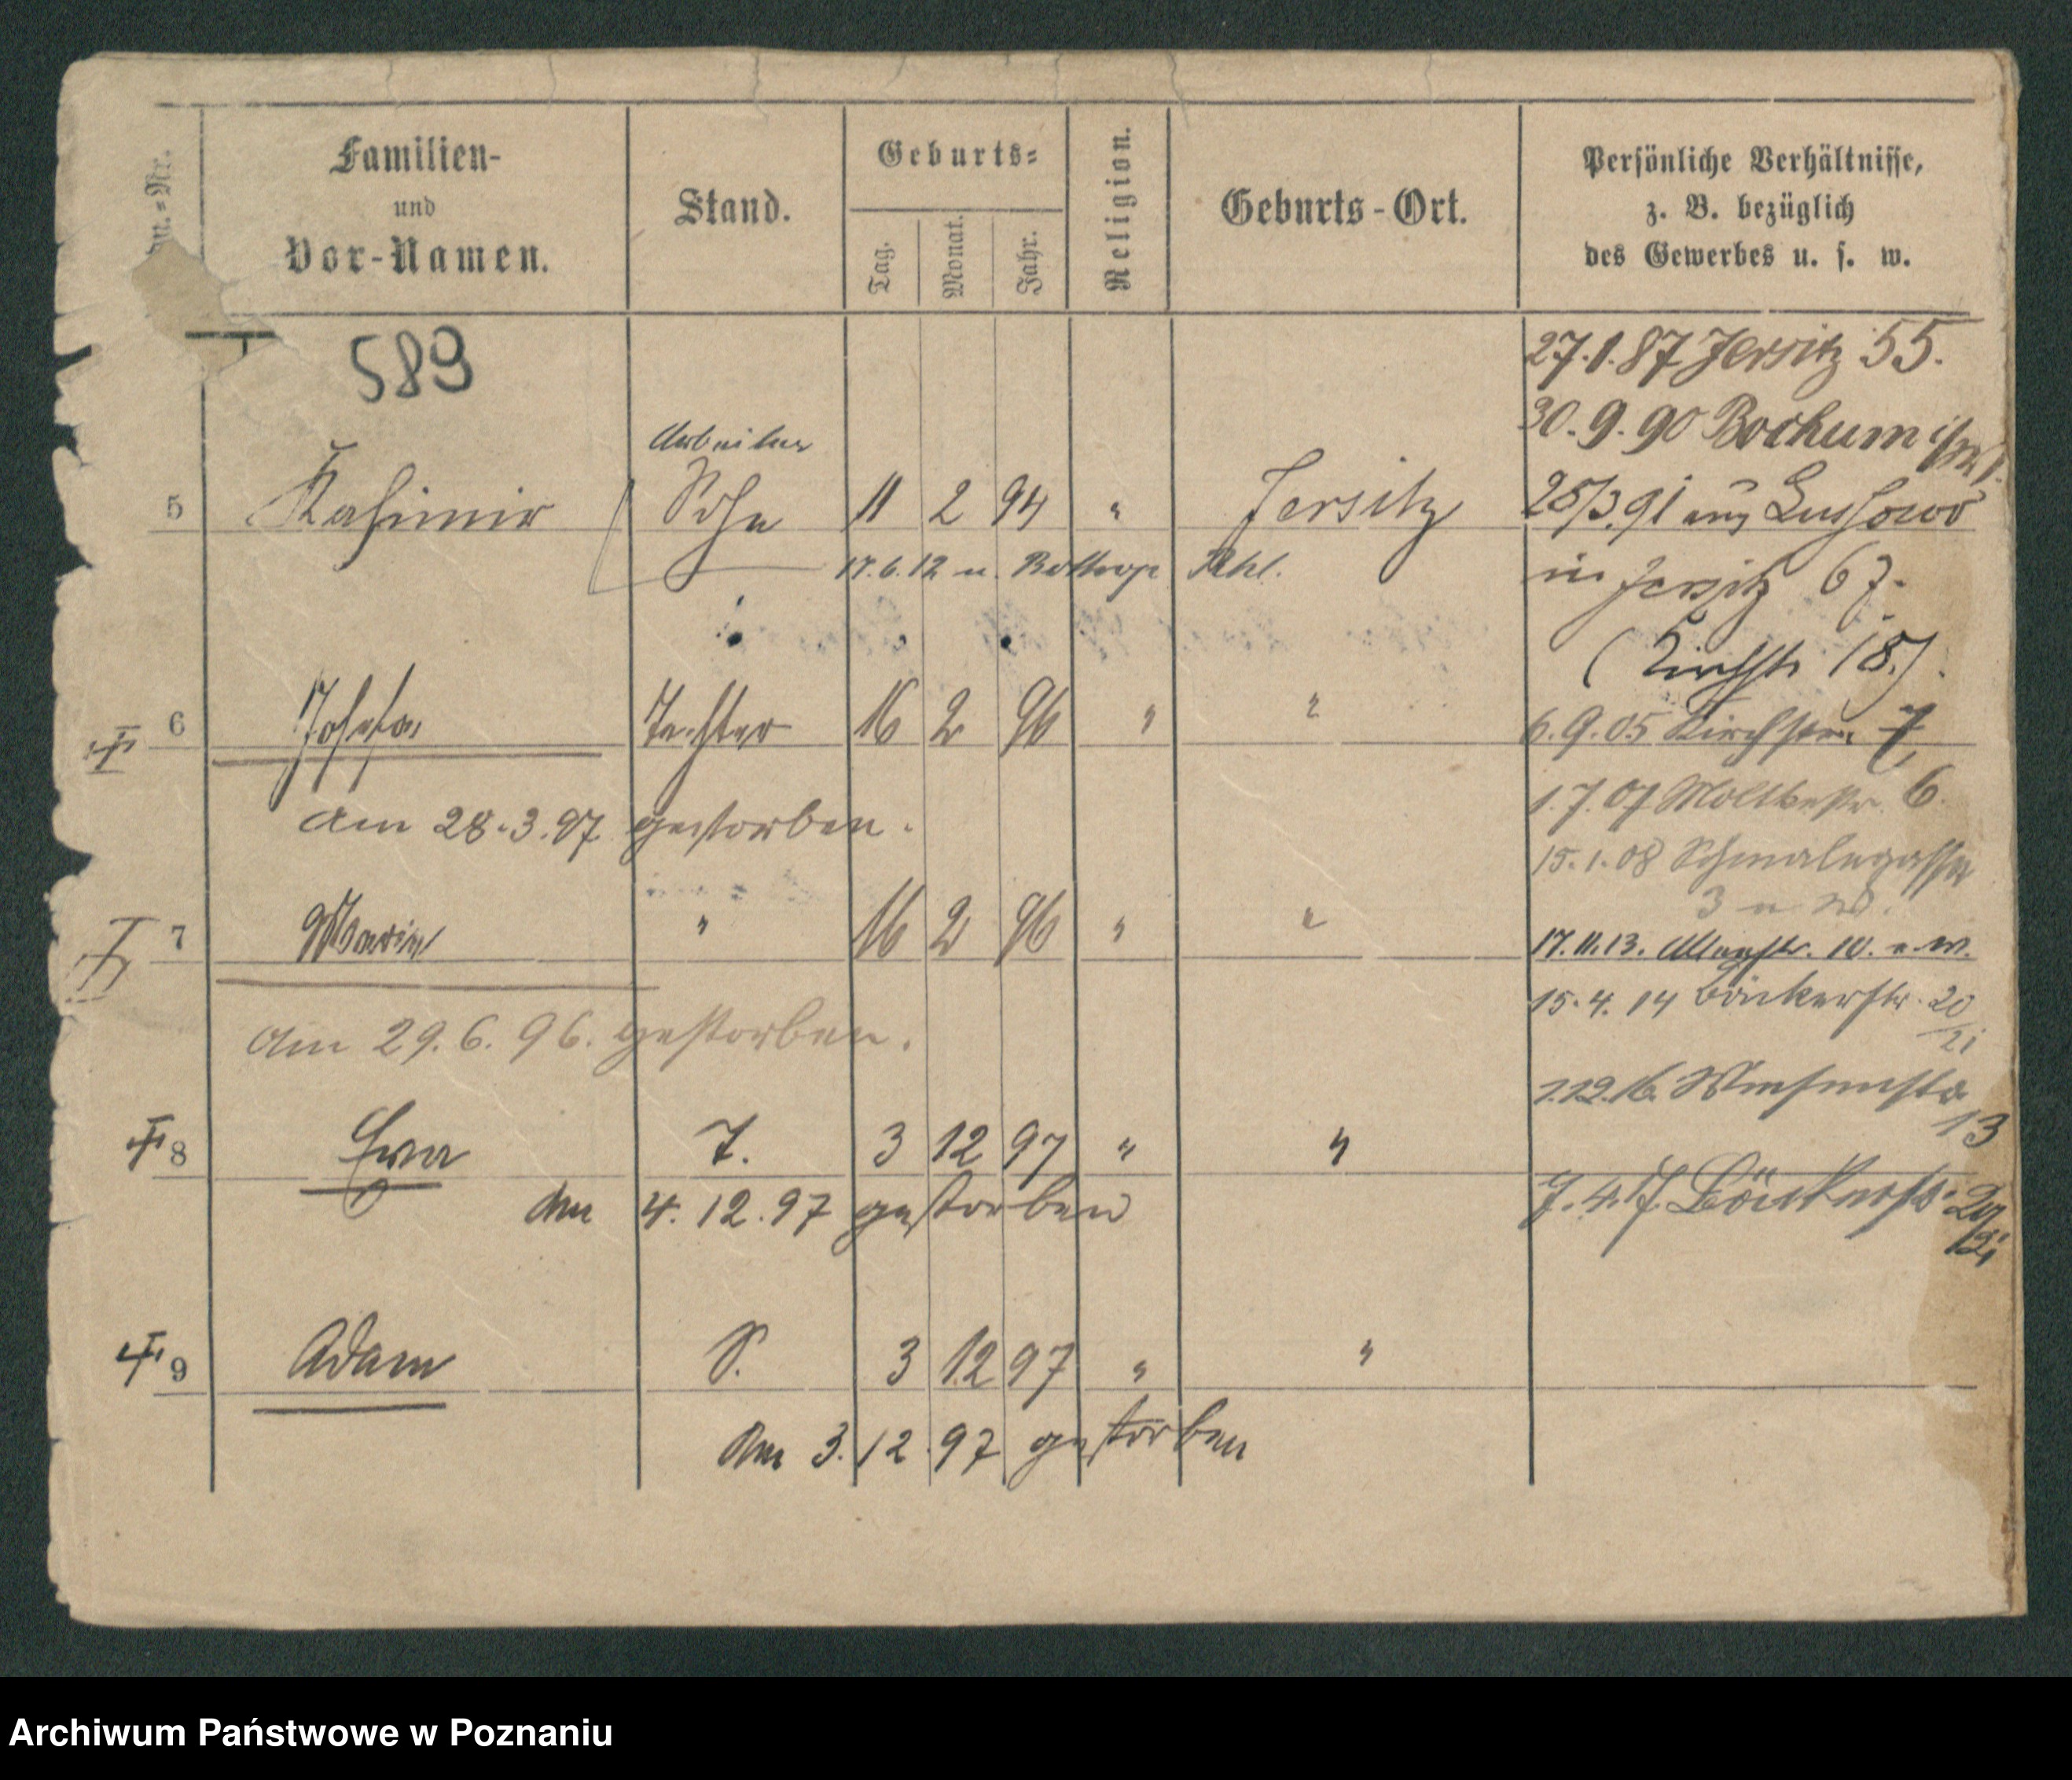 Familien- und Vor-Namen.
Stand.
Geburts-
Tag.
Monat.
Jahr.
Religion.
Geburts-Ort.
Persönliche Verhältnisse,
z. B. bezüglich
des Gewerbes u. s. w.
589
27.1.87 Jersitz 55.
30.9.90 Bochum
Arbeiter
5 Kasimir Sohn 11 2 94 " Jersitz
25/3.91 aus Lussowo
17.6.12 n. Bottrop
in Jersitz 67.
(Kirchstr 18.)
6 Josefa Tochter 16 2 96 " "
6.9.05 Kirchstr. 7
1.7.07 Moltkestr. 6.
am 28.3.97 gestorben.
15.1.08 Schmalegasse
3
7 Maria " 16 2 96 " "
17.11.13. 10.
15.4.14 Bäckerstr. 20/21
am 29.6.96. gestorben.
1.12.16. Wiesenstr
13
8 Ewa T. 3 12 97 " "
am 4.12.97 gestorben
7.4.17. Bäckerstr. 20/21
9 Adam S. 3 12 97 " "
am 3.12.97 gestorben
Archiwum Państwowe w Poznaniu